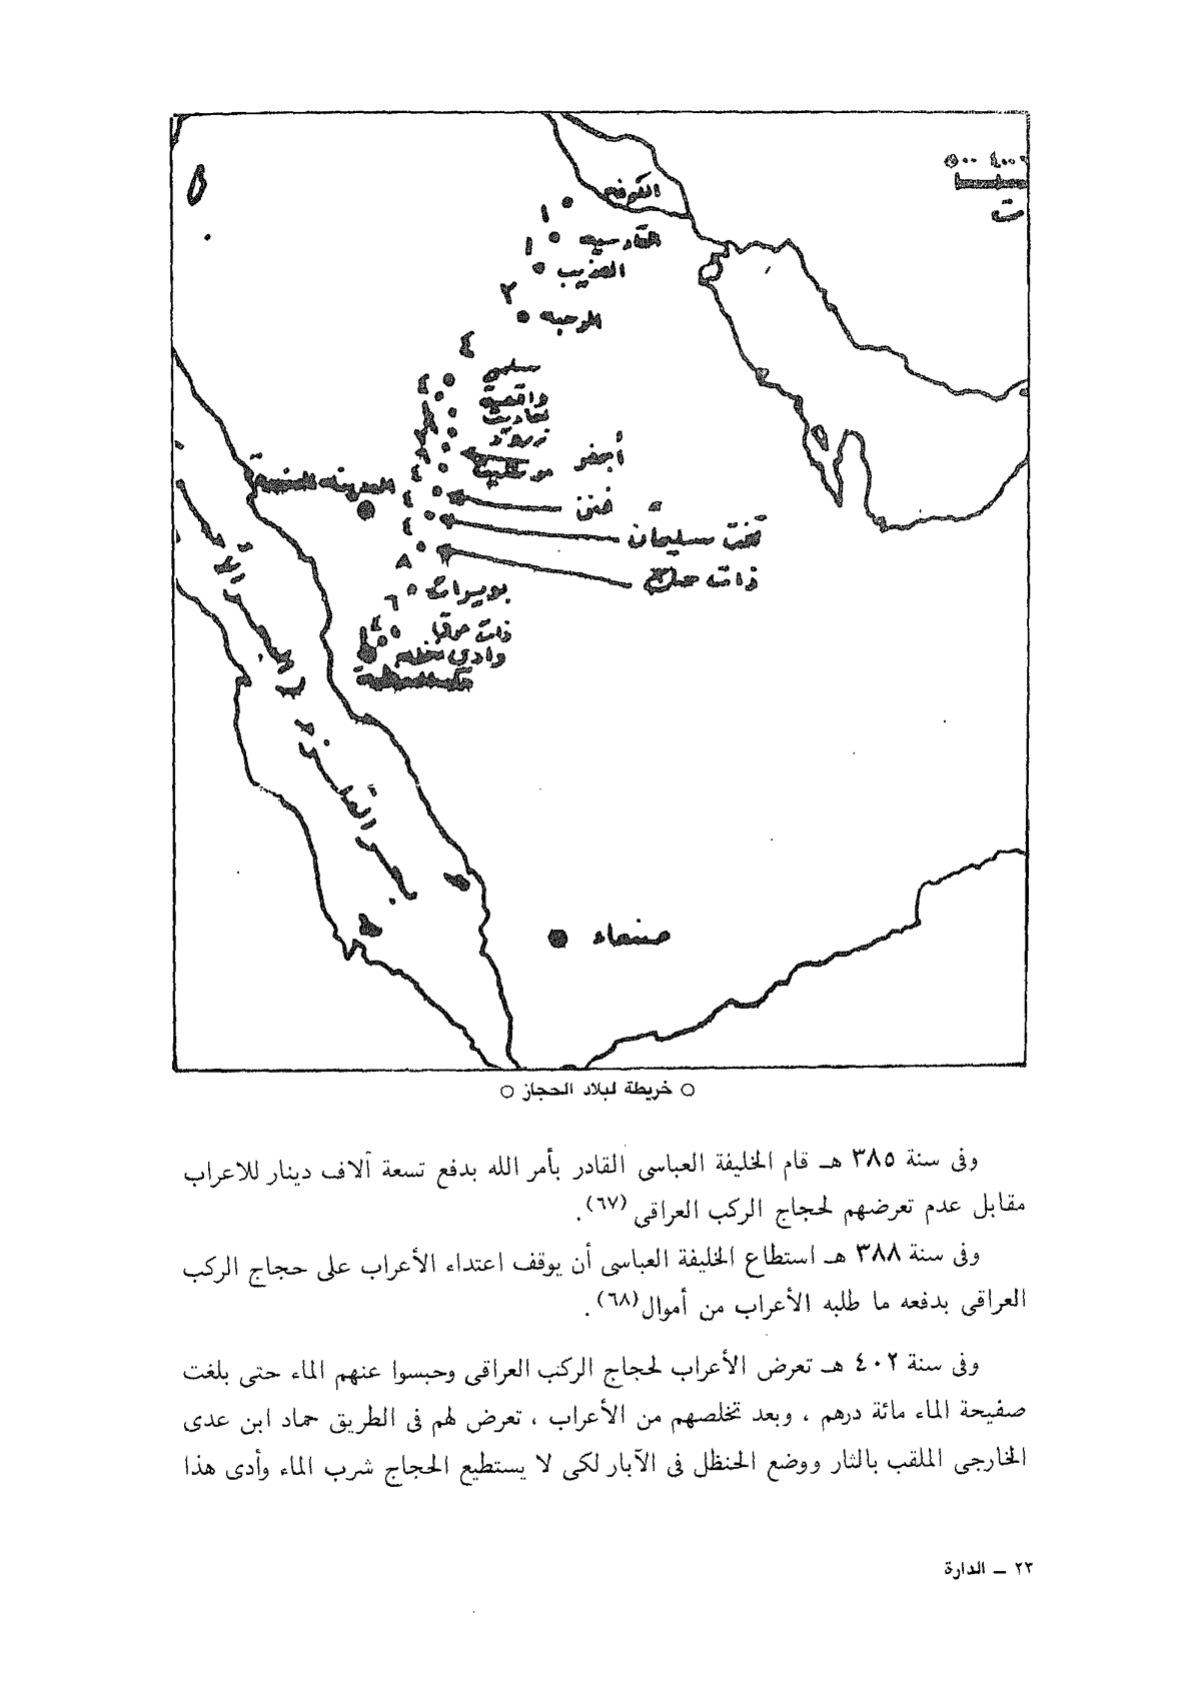 ٤٠٠ ٥٠٠
الكوفه
١
القادسيه
١
العذيب
٢
الرحبه
٤
سلمى
٤
واقصة
زرود
أجفر
٤
فنن
٤
تخت سليمان
٤
ذات
٨
٦
ذات
وادي نخله
مكة المعظمة
المدينة المنورة
صنعاء
○ خريطة لبلاد الحجاز ○
وفى سنة ٣٨٥ هـ قام الخليفة العباسى القادر بأمر الله بدفع تسعة آلاف دينار للاعراب
مقابل عدم تعرضهم لحجاج الركب العراقى (٦٧) .
وفى سنة ٣٨٨ هـ استطاع الخليفة العباسى أن يوقف اعتداء الأعراب على حجاج الركب
العراقى بدفعه ما طلبه الأعراب من أموال(٦٨) .
وفى سنة ٤٠٢ هـ تعرض الأعراب لحجاج الركب العراقى وحبسوا عنهم الماء حتى بلغت
صفيحة الماء مائة درهم ، وبعد تخلصهم من الأعراب ، تعرض لهم فى الطريق حماد ابن عدى
الخارجى الملقب بالثار ووضع الحنظل فى الآبار لكى لا يستطيع الحجاج شرب الماء وأدى هذا
٢٣ ــ الدارة